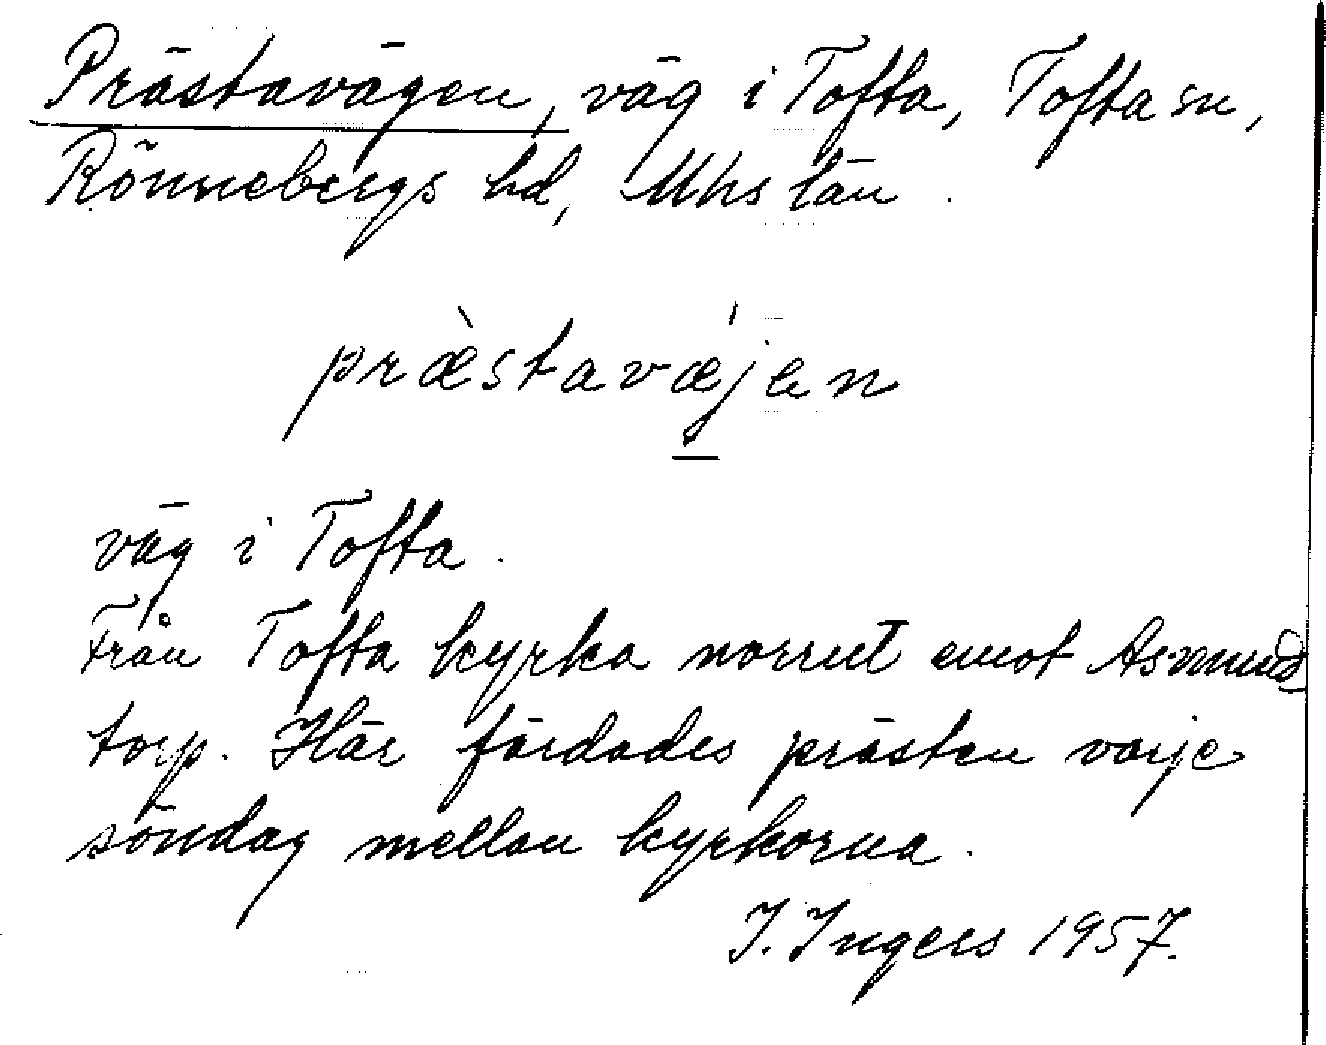 Prästavägen, väg i Tofta, Tofta sn,
Rönnebergs hd, Mhs län.
præ̀stavǽjen
väg i Tofta.
Från Tofta kyrka norrut emot Asmund
torp. Här färdades prästen varje
söndag mellan kyrkorna.
I. Ingers 1957.